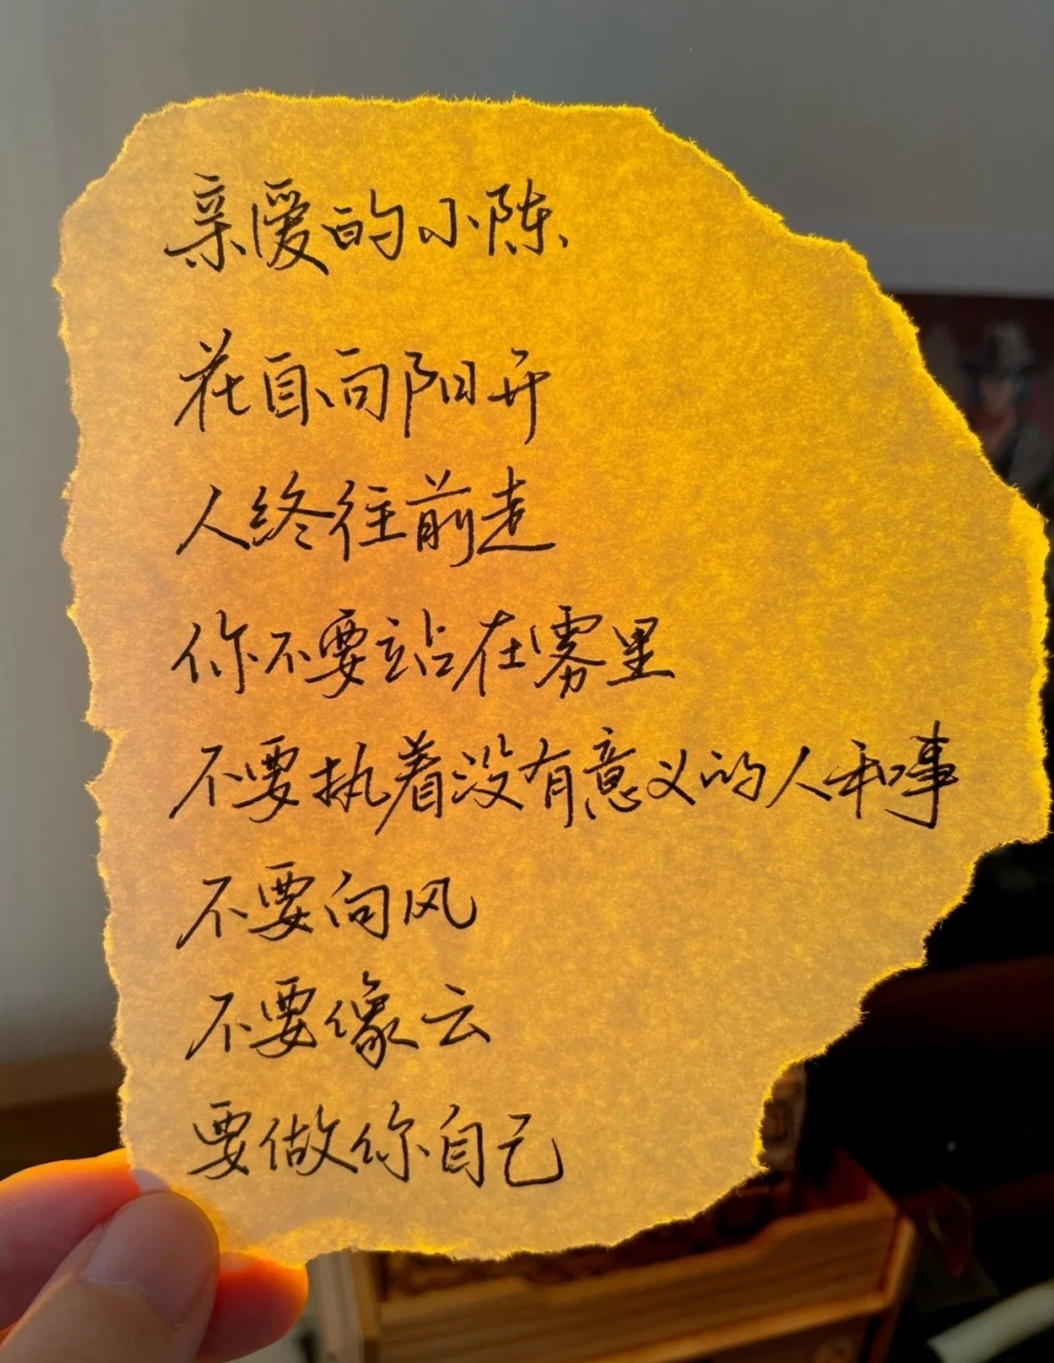 亲爱的小陈
花自向阳开
人终往前走
你不要站在雾里
不要执着没有意义的人和事
不要向风
不要像云
要做你自己